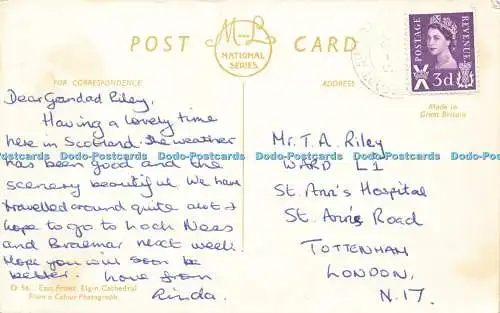 POST CARD
M and L
NATIONAL
SERIES
POSTAGE
REVENUE
3d
FOR CORRESPONDENCE
ADDRESS
Made in
Great Britain
Dear Grandad Riley,
Having a lovely time
here in Scotland the weather
has been good and the
scenery beautiful. We have
travelled around quite a lot &
hope to go to Loch Ness
and Braemar next week.
Hope you will soon be
better. Love from
Linda.
East Front, Elgin Cathedral
From a Colour Photograph
Mr. T. A. Riley
WARD L1
St. Ann's Hospital
St. Ann's Road
TOTTENHAM
LONDON,
N.17.
Dodo-Postcards Dodo-Postcards Dodo-Postcards Dodo-Postcards Dodo-Postcards Dodo-Postcards